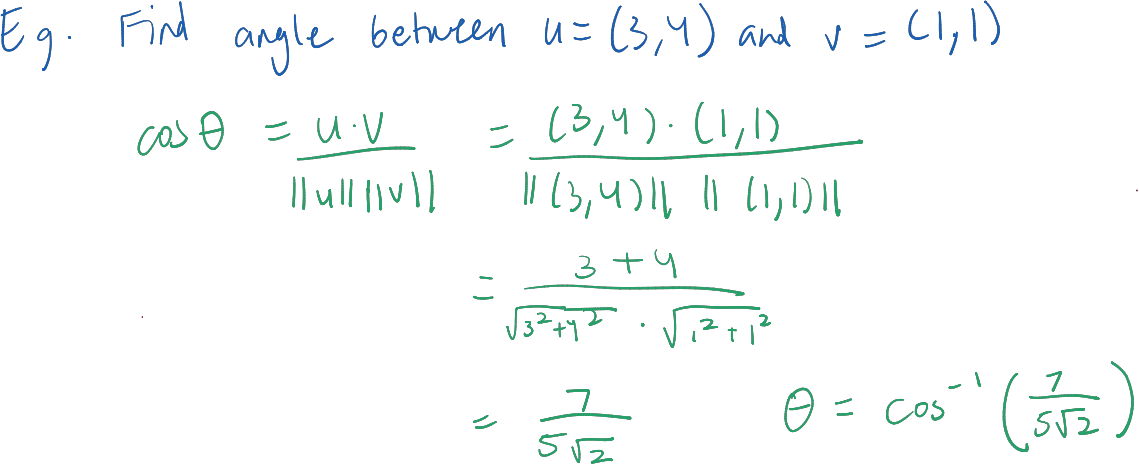 Eg. Find angle between u = (3,4) and v = (1,1)
cosθ = u·v / ||u|| ||v|| = (3,4)·(1,1) / ||(3,4)|| ||(1,1)||
= 3+4 / √(3²+4²) · √(1²+1²)
= 7 / 5√2 θ = cos⁻¹(7 / 5√2)